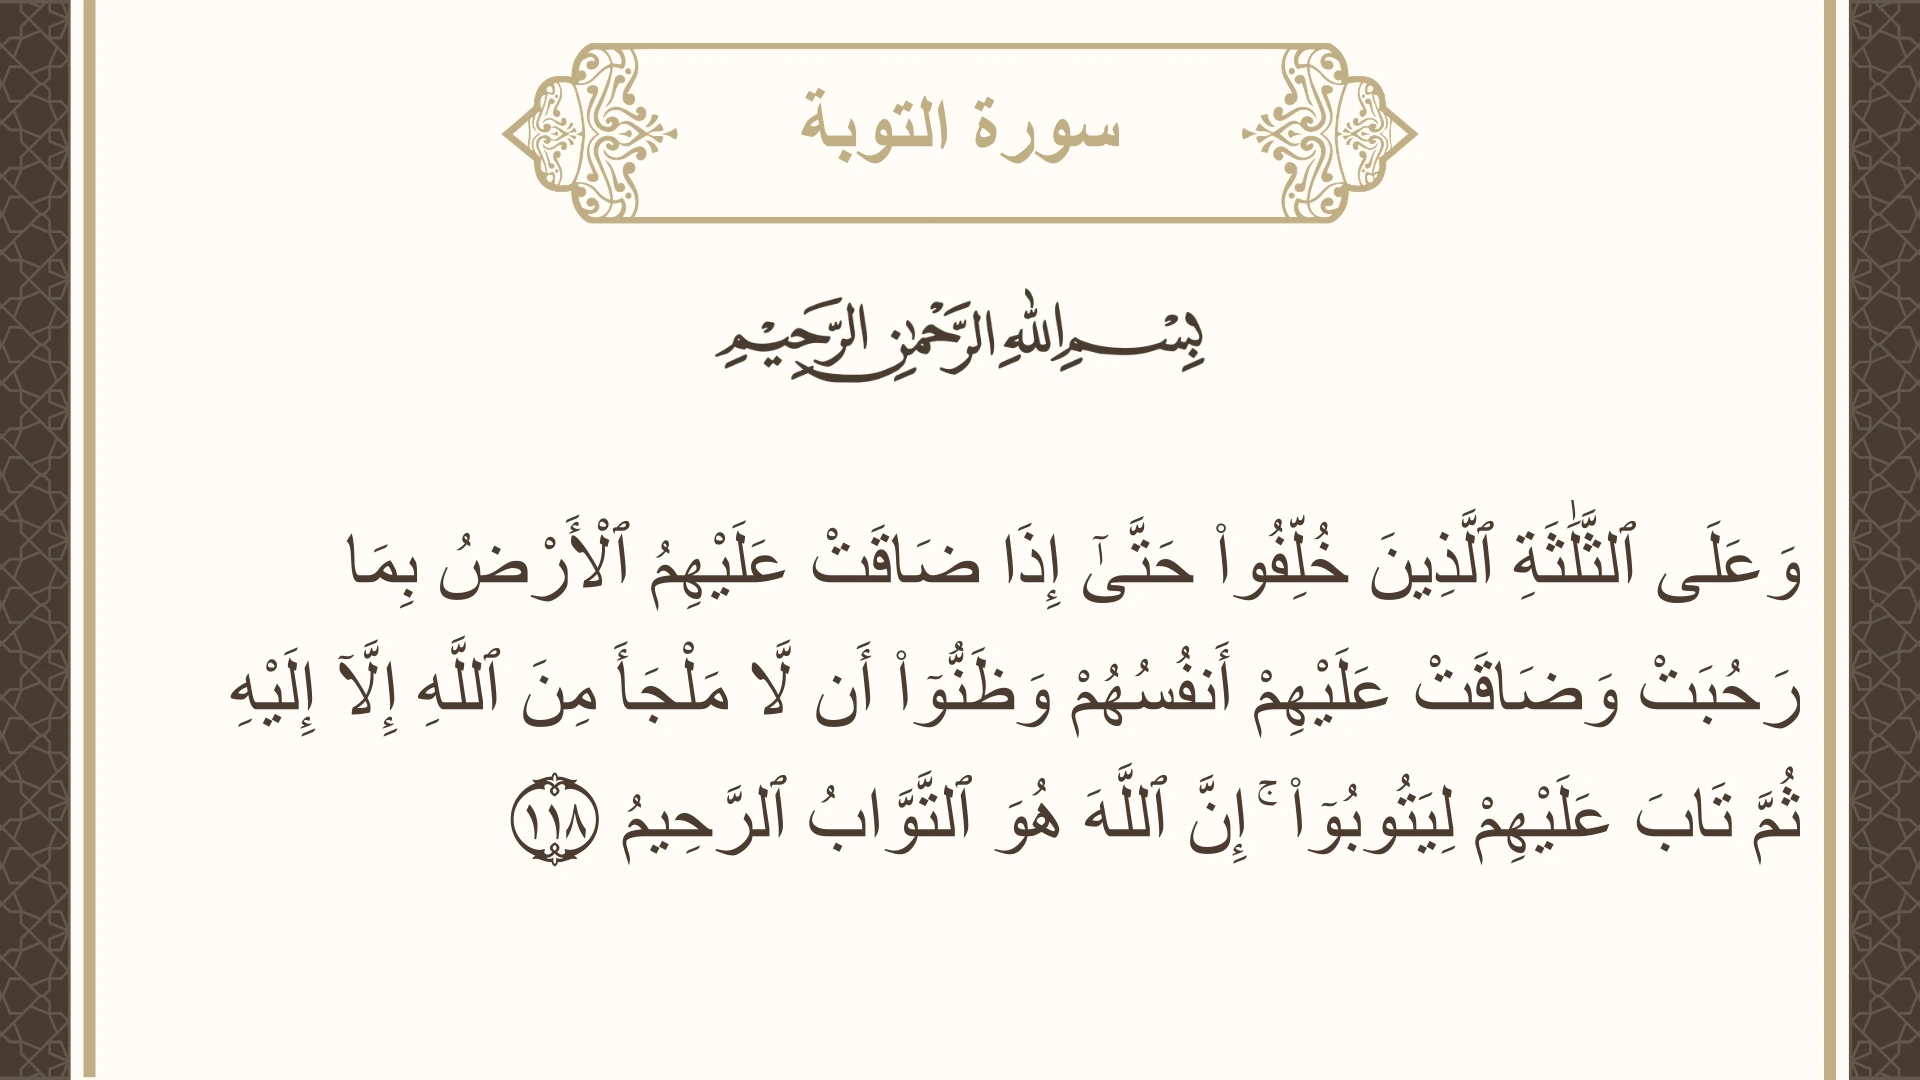 سورة التوبة
بِسْمِ اللهِ الرَّحْمٰنِ الرَّحِيْمِ
وَعَلَى ٱلثَّلَٰثَةِ ٱلَّذِينَ خُلِّفُوا۟ حَتَّىٰٓ إِذَا ضَاقَتْ عَلَيْهِمُ ٱلْأَرْضُ بِمَا
رَحُبَتْ وَضَاقَتْ عَلَيْهِمْ أَنفُسُهُمْ وَظَنُّوٓا۟ أَن لَّا مَلْجَأَ مِنَ ٱللَّهِ إِلَّآ إِلَيْهِ
ثُمَّ تَابَ عَلَيْهِمْ لِيَتُوبُوٓا۟ ۚ إِنَّ ٱللَّهَ هُوَ ٱلتَّوَّابُ ٱلرَّحِيمُ ١١٨